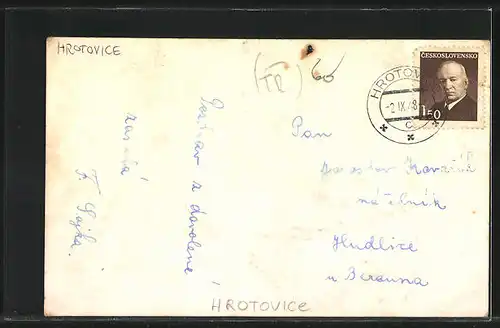 HROTOVICE
(TR)
60
ČESKOSLOVENSKO
1.50
HROTOV
-2.IX.48
c
Pozdrav z dovolené
zasílá
F. Lajka.
Pan
Jaroslav
náčelník
Hudlice
u Berouna
HROTOVICE